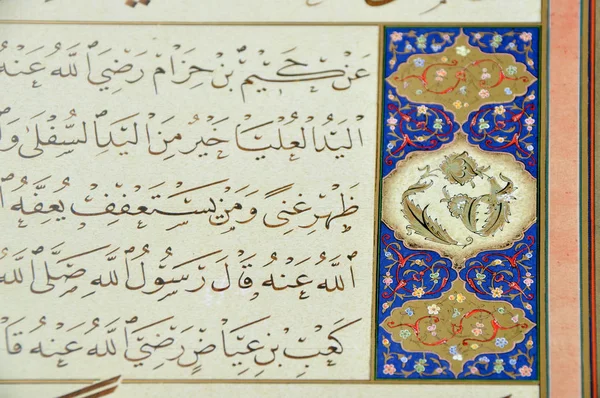 عَنْ حَكِيمِ بْنِ حِزَامٍ رَضِيَ اللّٰهُ عَنْهُ
الْيَدُ الْعُلْيَا خَيْرٌ مِنَ الْيَدِ السُّفْلَىٰ
ظَهْرِ غِنًى وَمَنْ يَسْتَعْفِفْ يُعِفَّهُ
اللّٰهُ عَنْهُ قَالَ رَسُولُ اللّٰهِ صَلَّى اللّٰهُ
كَعْبِ بْنِ عِيَاضٍ رَضِيَ اللّٰهُ عَنْهُ